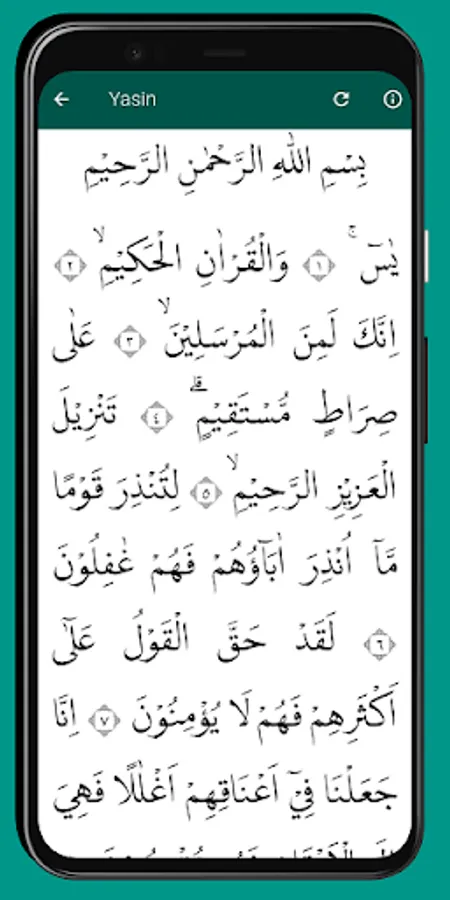 Yasin
بِسْمِ اللّٰهِ الرَّحْمٰنِ الرَّحِيْمِ
يٰسۤ ۚ ١ وَالْقُرْاٰنِ الْحَكِيْمِۙ ٢
اِنَّكَ لَمِنَ الْمُرْسَلِيْنَۙ ٣ عَلٰى
صِرَاطٍ مُّسْتَقِيْمٍۗ ٤ تَنْزِيْلَ
الْعَزِيْزِ الرَّحِيْمِۙ ٥ لِتُنْذِرَ قَوْمًا
مَّآ اُنْذِرَ اٰبَاۤؤُهُمْ فَهُمْ غٰفِلُوْنَ
٦ لَقَدْ حَقَّ الْقَوْلُ عَلٰٓى
اَكْثَرِهِمْ فَهُمْ لَا يُؤْمِنُوْنَ ٧ اِنَّا
جَعَلْنَا فِيْٓ اَعْنَاقِهِمْ اَغْلٰلًا فَهِيَ